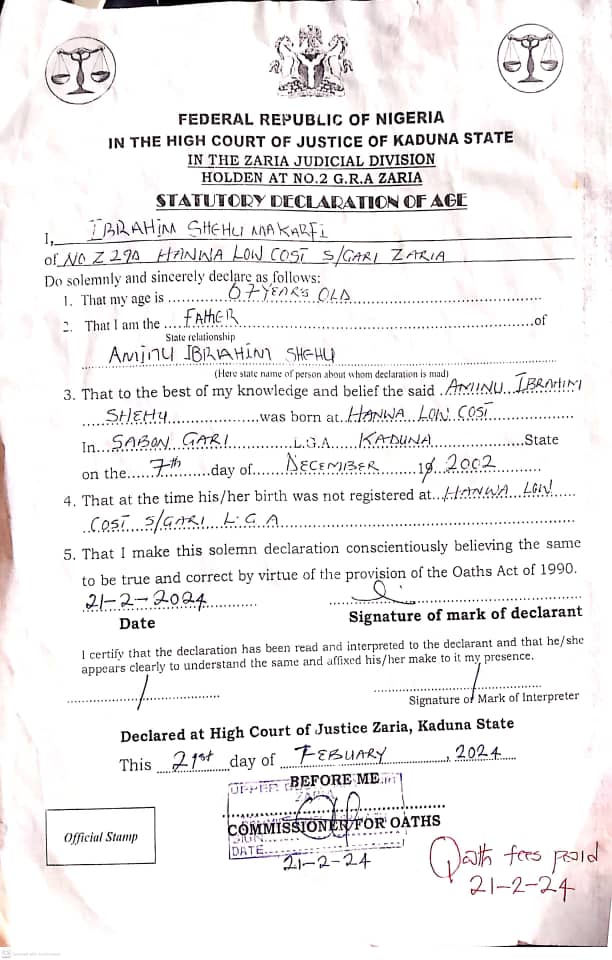 FEDERAL REPUBLIC OF NIGERIA
IN THE HIGH COURT OF JUSTICE OF KADUNA STATE
IN THE ZARIA JUDICIAL DIVISION
HOLDEN AT NO.2 G.R.A ZARIA
STATUTORY DECLARATION OF AGE
I, IBRAHIM SHEHU MAKARFI
of NO Z 290 HANWA LOW COST S/GARI ZARIA
Do solemnly and sincerely declare as follows:
1. That my age is ........ 67 YEARS OLD ........
2. That I am the .... FATHER ........ of
State relationship
AMINU IBRAHIM SHEHU
(Here state name of person about whom declaration is mad)
3. That to the best of my knowledge and belief the said . AMINU IBRAHIM
SHEHU ........ was born at HANWA LOW COST
In... SABON GARI ........ L.G.A KADUNA ........ State
on the...... 7th ......day of...... DECEMBER ...... 19 2002
4. That at the time his/her birth was not registered at... HANWA LOW
COST S/GARI L.G.A
5. That I make this solemn declaration conscientiously believing the same
to be true and correct by virtue of the provision of the Oaths Act of 1990.
21-2-2024
Date Signature of mark of declarant
I certify that the declaration has been read and interpreted to the declarant and that he/she
appears clearly to understand the same and affixed his/her make to it my presence.
Signature of Mark of Interpreter
Declared at High Court of Justice Zaria, Kaduna State
This 21st day of FEBUARY, 2024
BEFORE ME
COMMISSIONER FOR OATHS
DATE
21-2-24
Official Stamp
Oath fees paid
21-2-24